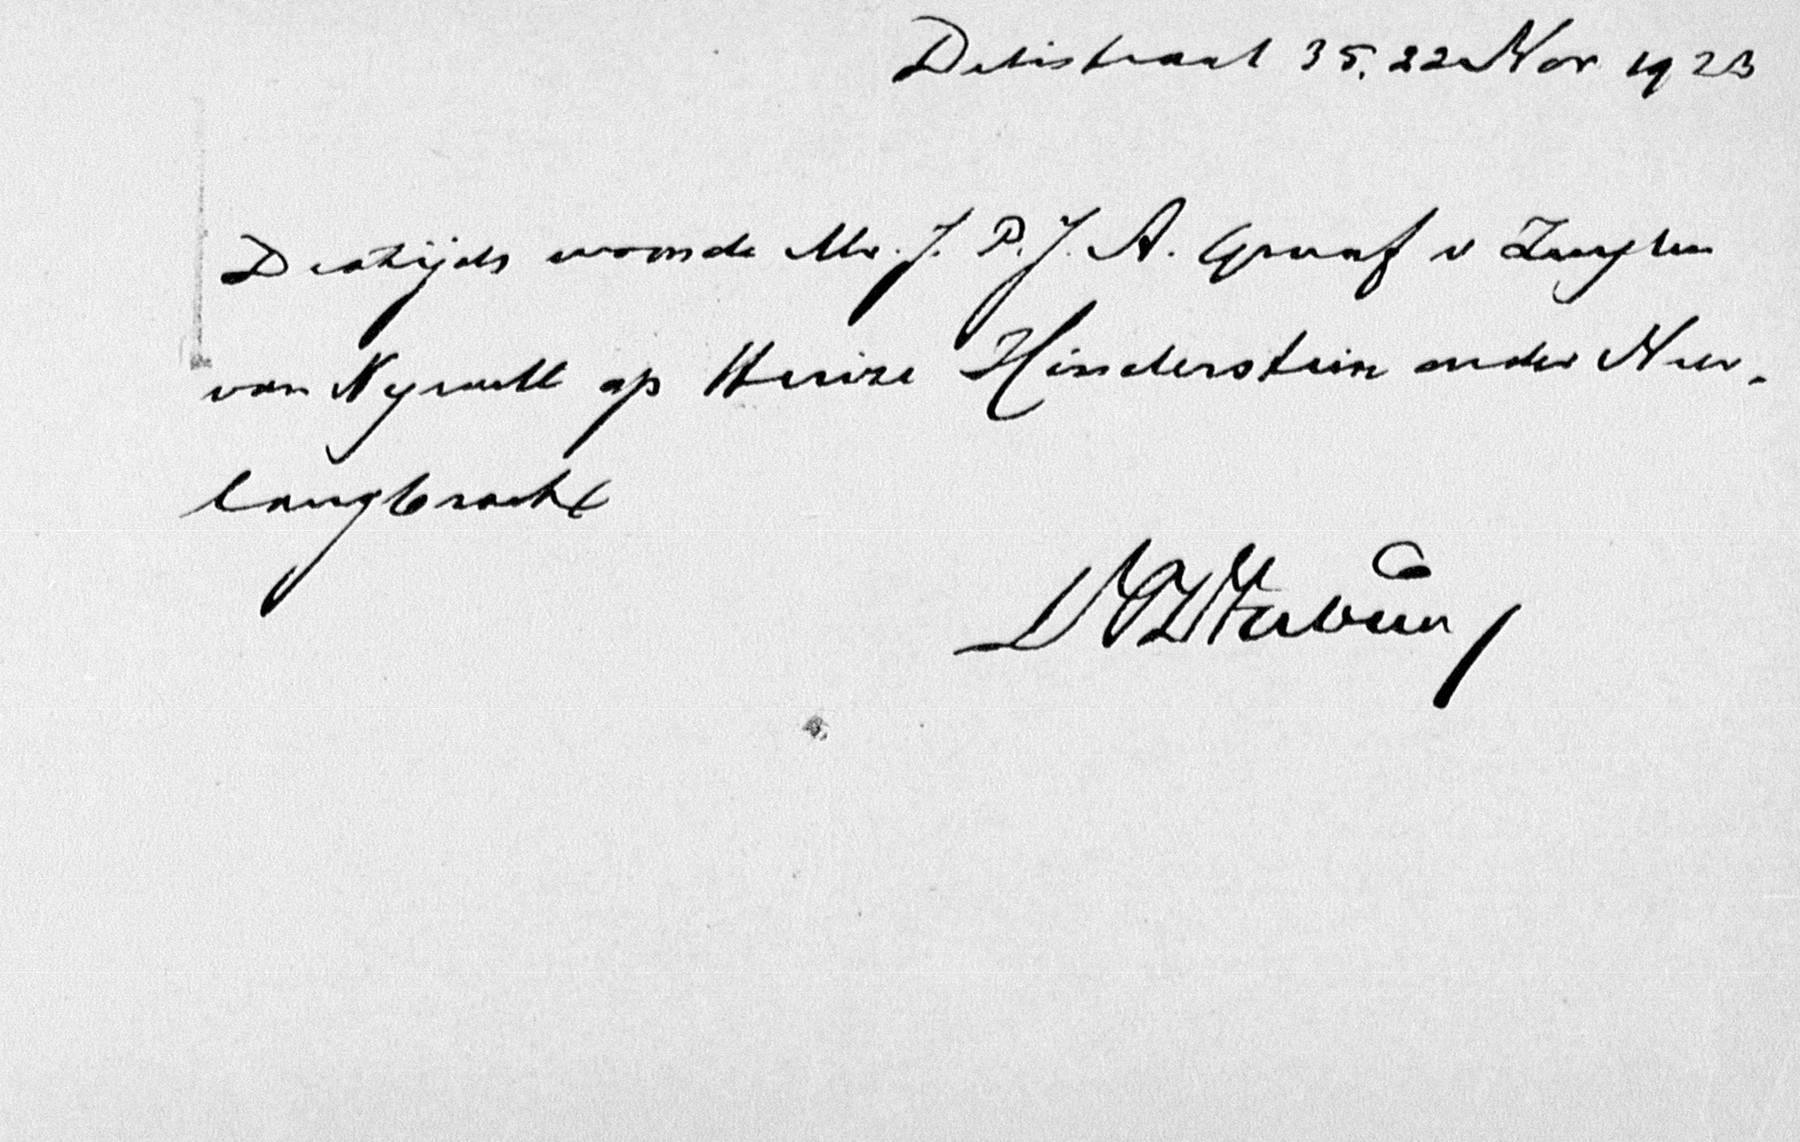 Delistraat 35. 22 Nov 1923
Destijds woonde Mr. J. P. J. A. Graaf v Zuylen
van Nyevelt op Huize Hinderstein onder Neer-
langbracht